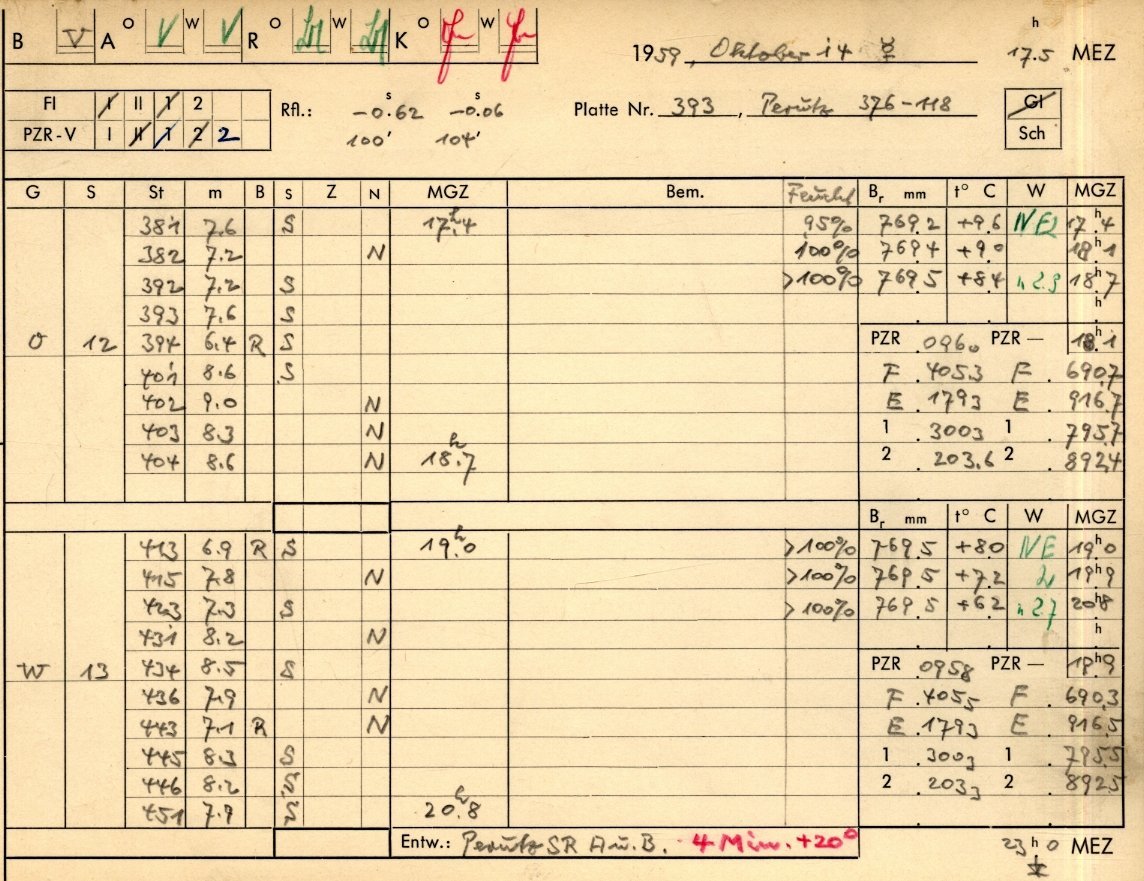 B V A O V W V R O W K O W
1959, Oktober 14 ☿ 17.5 h MEZ
FI I II 1 2
PZR-V I II 1 2 2
Rfl.: -0.62 s -0.06 s
100' 104'
Platte Nr. 393, Perutz 376-118
GI
Sch
G S St m B S Z N MGZ Bem. Feucht Br mm t° C W MGZ
381 7.6 S 17h.4 95% 769.2 +9.6 NE2 17h.4
382 7.2 N 100% 769.4 +9.0 18h.1
392 7.2 S >100% 769.5 +8.4 18h.7
393 7.6 S h
O 12 394 6.4 R S PZR .0960 PZR — 18h.1
401 8.6 S F .4053 F .6907
402 9.0 N E .1793 E .9167
403 8.3 N 1 .3003 1 .7957
404 8.6 N 18h.7 2 .203.6 2 .8924
Br mm t° C W MGZ
413 6.9 R S 19h.0 >100% 769.5 +8.0 NE 19h.0
415 7.8 N >100% 769.5 +7.2 2 19h.9
423 7.3 S >100% 769.5 +6.2 20h.8
431 8.2 N h
W 13 434 8.5 S PZR .0958 PZR — 19h.9
436 7.9 N F .4055 F .6903
443 7.1 R N E .1793 E .9165
445 8.3 S 1 .3003 1 .7955
446 8.2 S 2 .2033 2 .8925
451 7.9 S 20h.8
Entw.: Perutz SR A u. B. 4 Min. +20° 23h0 MEZ